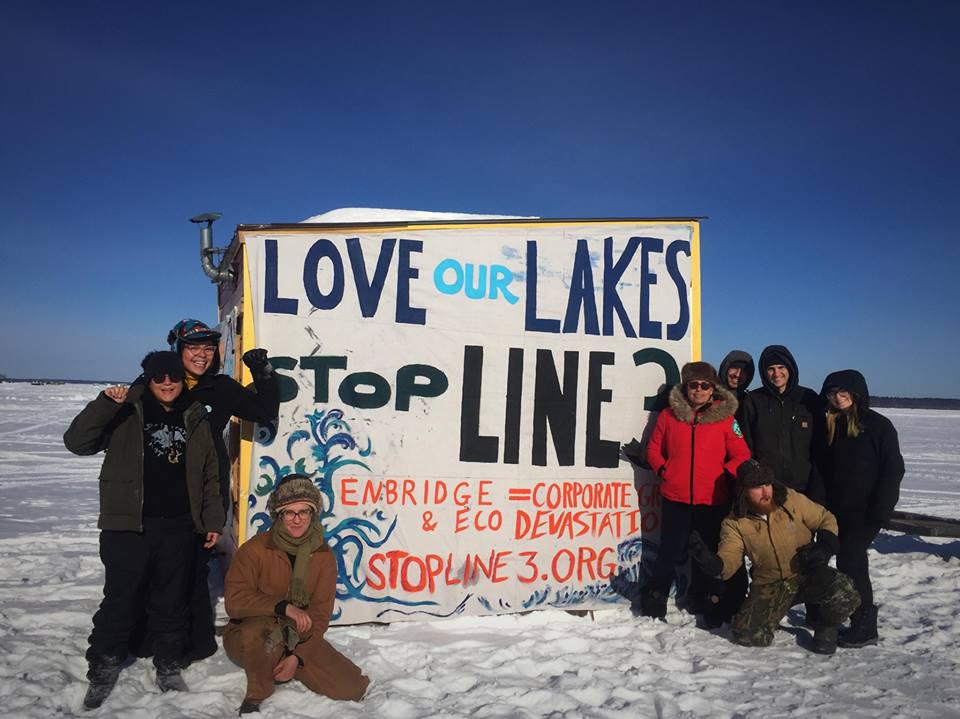 LOVE OUR LAKES
STOP LINE 3
ENBRIDGE = CORPORATE
& ECO DEVASTATIO
STOPLINE3.ORG